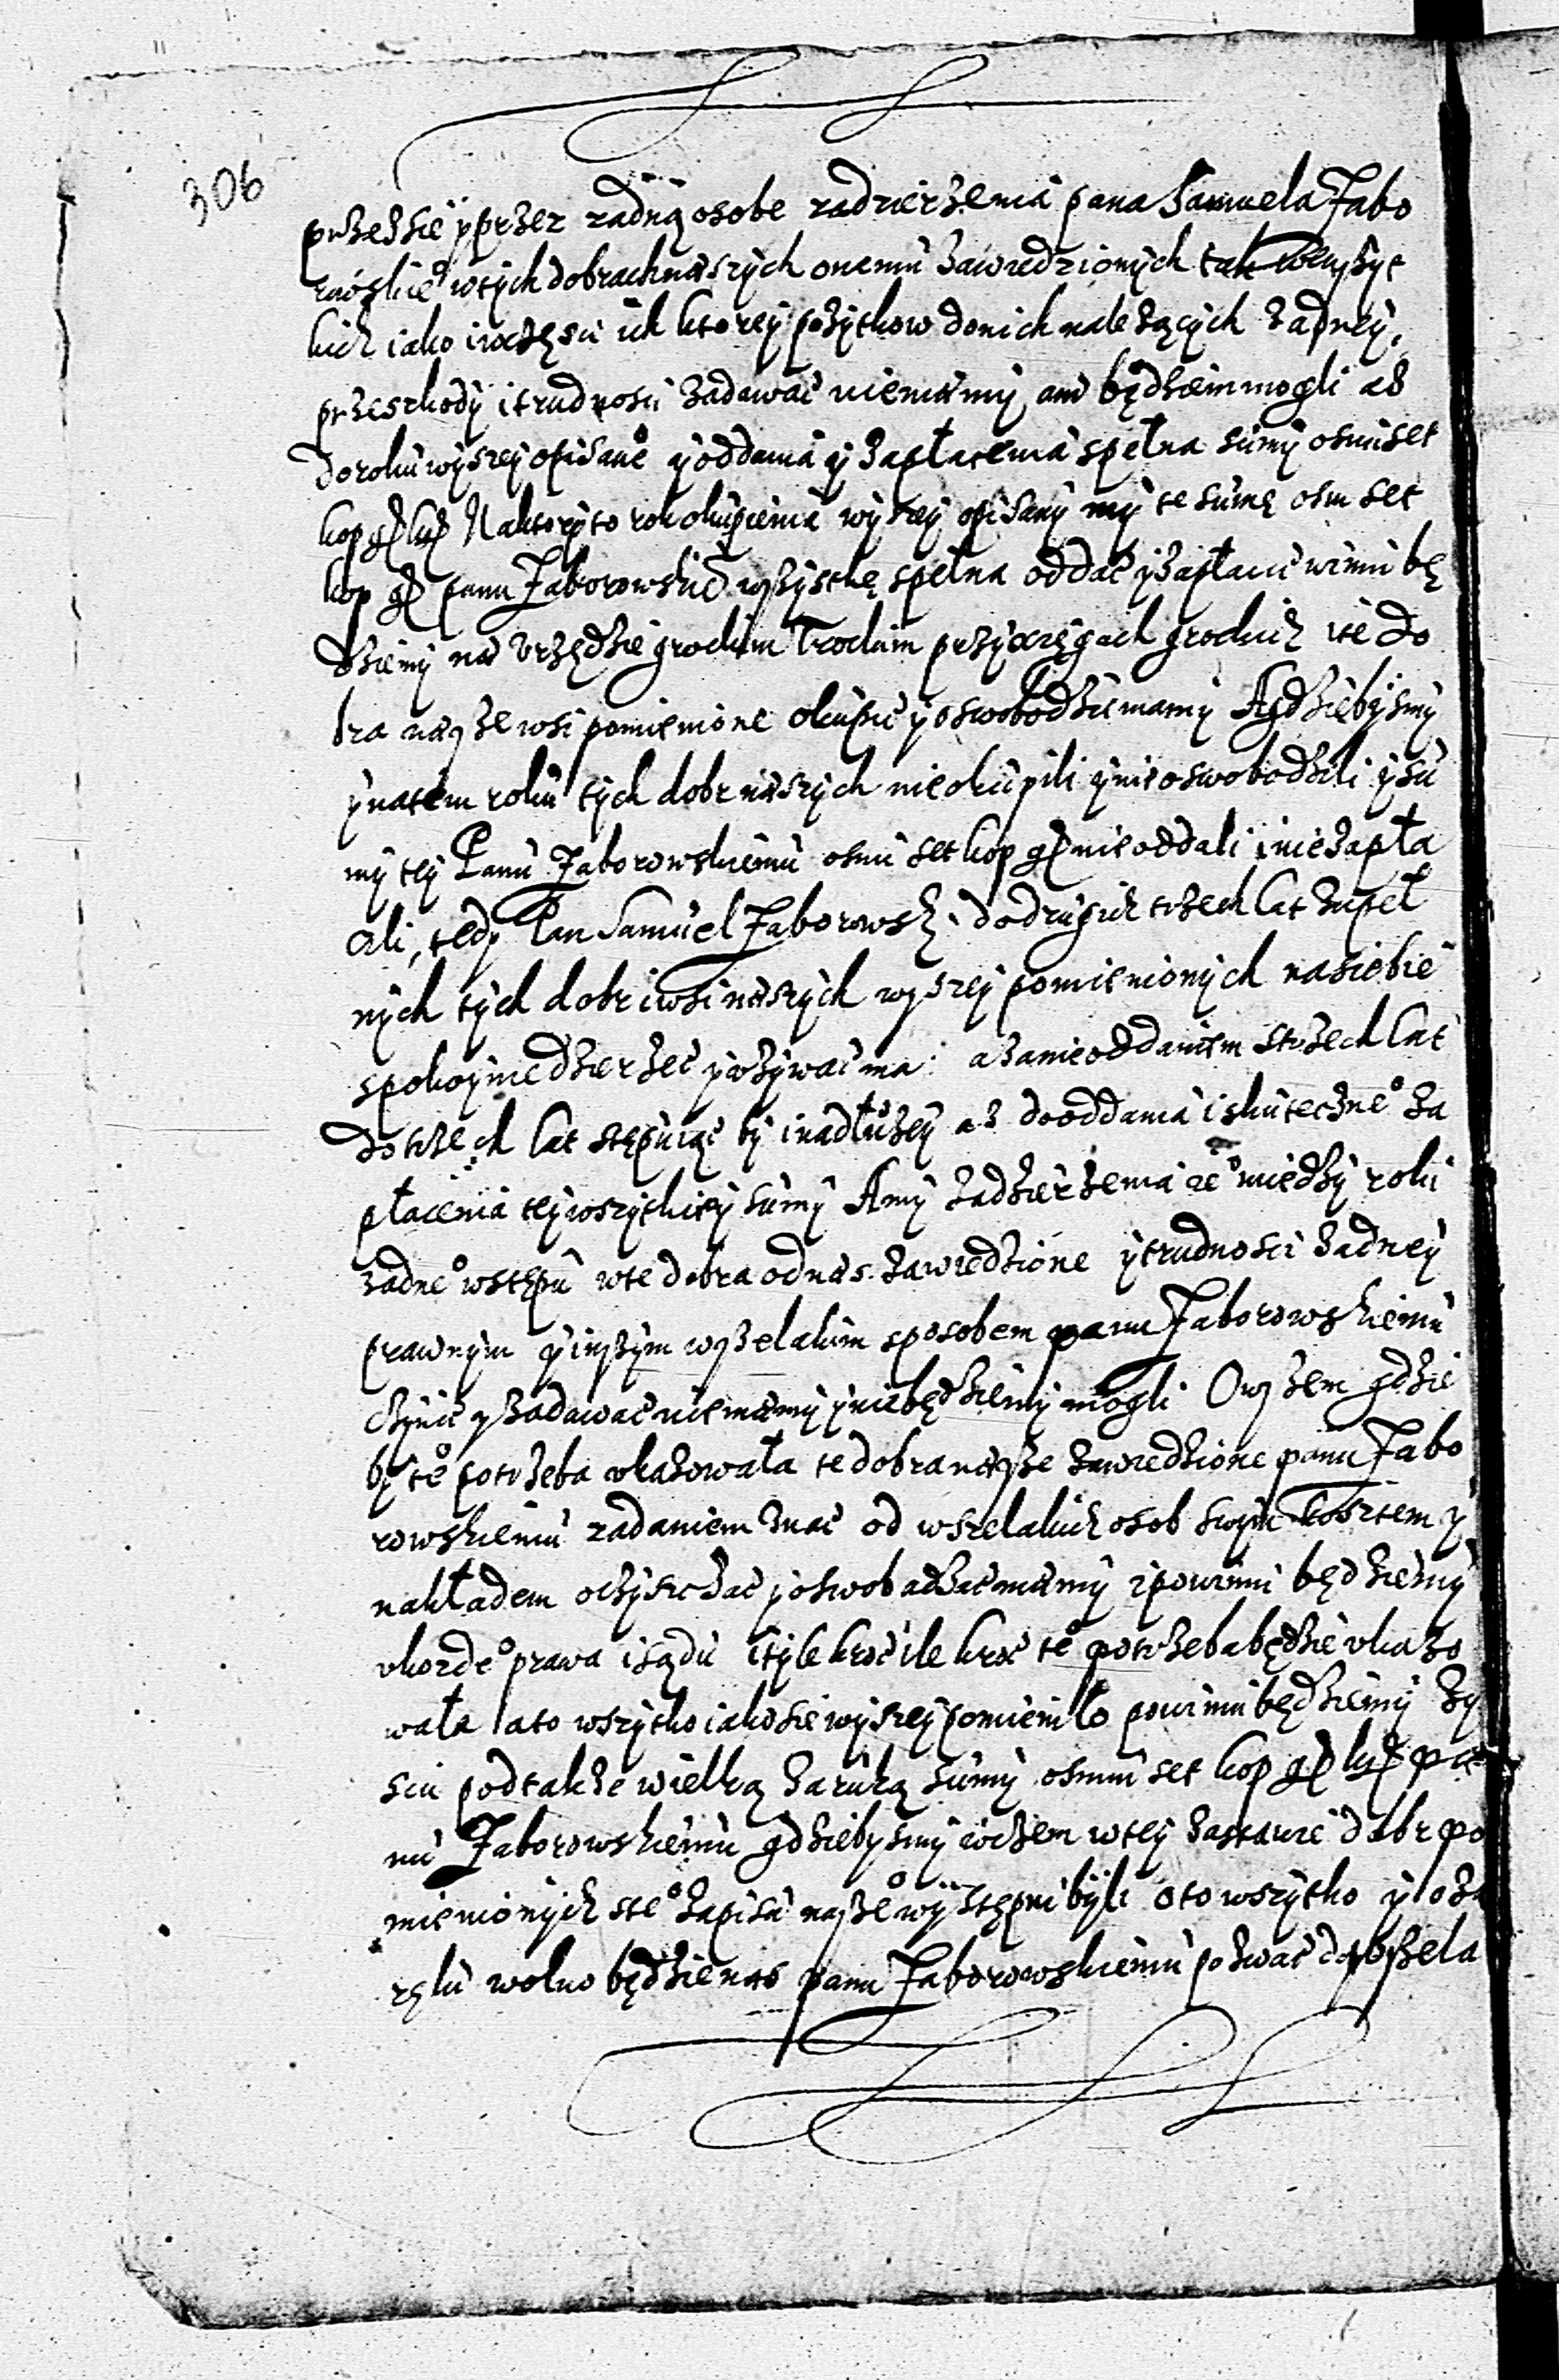 306
przez sie ÿ przez zadną osobe zadzierzenia pana Samuela Zabo
rowskieº wtÿch dobrach naszÿch onemu zawiedzionÿch tak wewszÿt
kich iako iwczęsci ich ktoreÿ pozÿtkow donich nalezącÿch zadneÿ
przeszkodÿ i trudnosci zadawac niemamÿ ani będziem mogli az
do roku wÿszeÿ opisaneº ÿ oddania ÿ zapłacenia spełna sumÿ osmiset
kop gр liр Naktorÿ to rok okupienia wÿszeÿ opisanÿ mÿ te sumę osm set
kop gр panu Zaborowskieº wszÿstkę spełna oddac ÿ zapłacic winni bę
dziemÿ na vrzędzie grodzkim Trockim przÿ xięgach grodzkich ite do
bra nasze wsi pomienione okupic ÿ oswobodzic mamÿ A gdziebÿsmÿ
ÿ natem roku tÿch dobr naszÿch nie okupili ÿ nie oswobodzili ÿ su
mÿ teÿ Panu Zaborowskiemu osmi set kop gр nie oddali i nie zapła
cili, tedÿ Pan Samuel Zaborowski do drugich trzech lat zupeł
nÿch tÿch dobr i wsi naszÿch wÿszeÿ pomienionÿch nasiebie
spokoÿnie dzierzec ÿ vzÿwac ma a zanieoddaniem s trzech lat
do trzech lat stępuiąc bÿ i nadłuzeÿ az do oddania i skutecżneº za
płacenia teÿ wszÿtkieÿ sumÿ A mÿ zadzierzenia ieº miedzÿ roki
zadneº wstępu wte dobra odnas zawiedzione ÿ trudnosci zadneÿ
prawnÿm ÿ inszÿm wszelakim sposobem panu Zaborowskiemu
czÿnic ÿ zadawac niemamÿ ÿ niebędziemÿ mogli Owszem gdzie
bÿ teº potrzeba vkazowała te dobra nasze zawiedzione panu Zabo
rowskiemu zadaniem znac od wszelakich osob swÿm kosztem ÿ
nakładem oczÿsczac ÿ oswobadzac mamÿ i powinni będziemÿ
vkozdeº prawa i sądu i tÿle kroc ile kroc teº potrzeba będzie vkazo
wała a to wszÿtko iako sie wÿszeÿ pomieniło powinni będziemÿ zÿ
scic pod takze wielką zaruką sumÿ osmiu set kop gр liр pa
nu Zaborowskiemu gdziebÿsmÿ wczem wteÿ zastawie dobr po
mienionÿch steº zapisu naszeº wÿstępni bÿli o to wszÿtko ÿ o za
rękę wolno będzie nas panu Zaborowskiemu pozwac do wszela